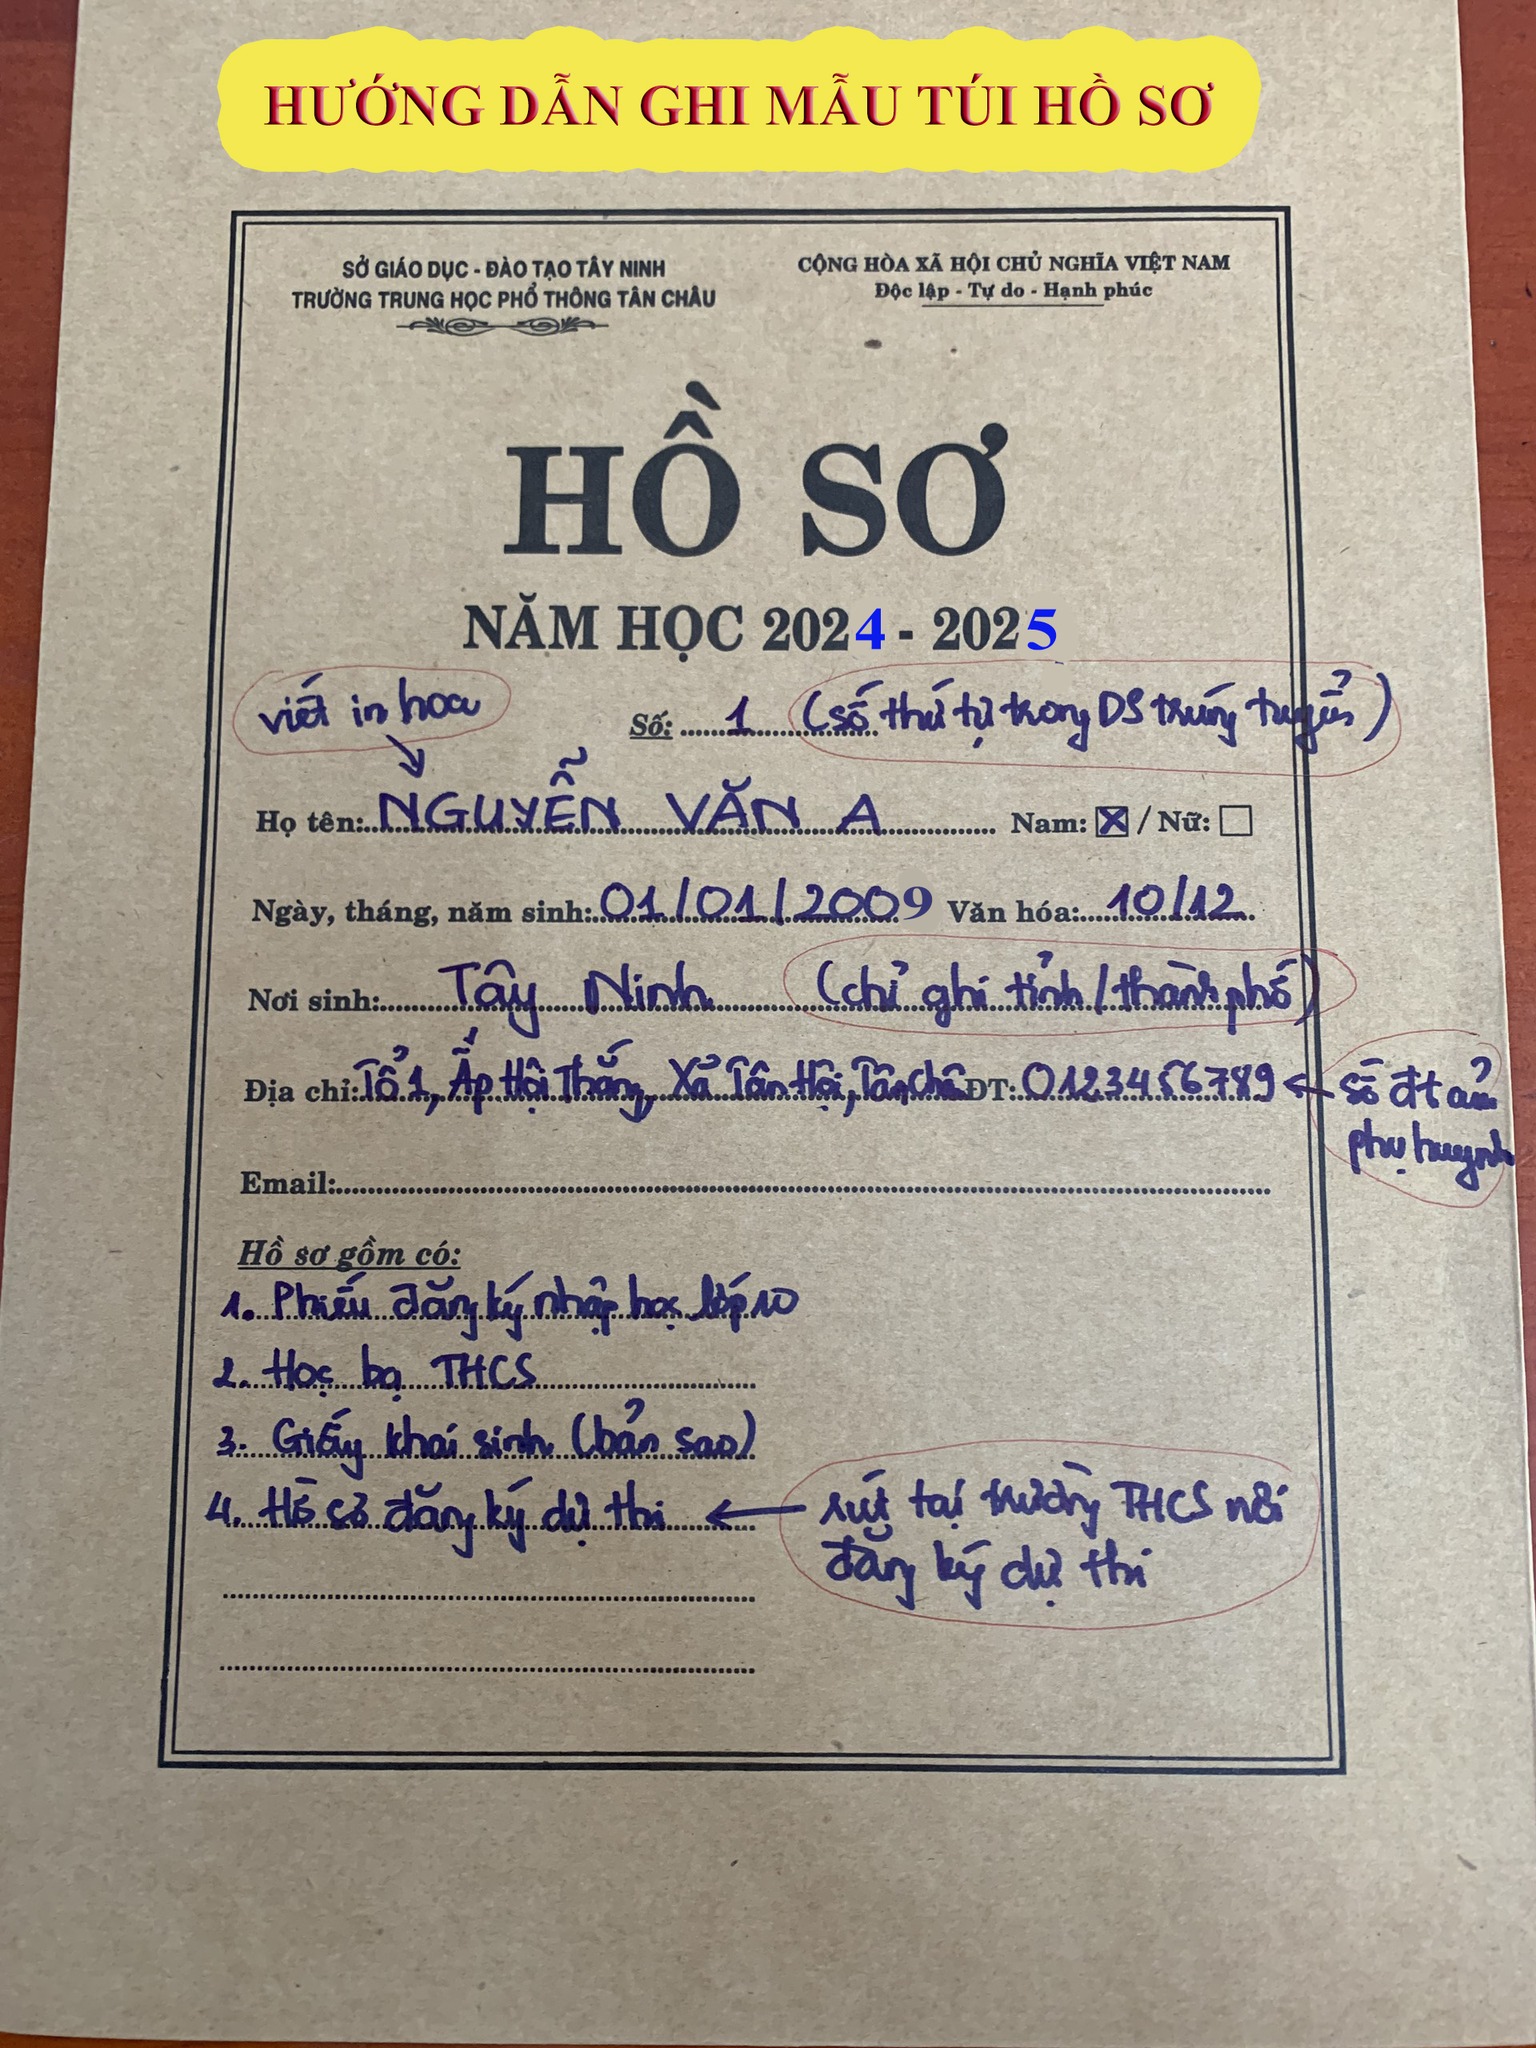 HƯỚNG DẪN GHI MẪU TÚI HỒ SƠ
SỞ GIÁO DỤC - ĐÀO TẠO TÂY NINH
TRƯỜNG TRUNG HỌC PHỔ THÔNG TÂN CHÂU
CỘNG HÒA XÃ HỘI CHỦ NGHĨA VIỆT NAM
Độc lập - Tự do - Hạnh phúc
HỒ SƠ
NĂM HỌC 2024 - 2025
viết in hoa
Số: 1 (số thứ tự trong DS trúng tuyển)
Họ tên: NGUYỄN VĂN A Nam: ☒ / Nữ: ☐
Ngày, tháng, năm sinh: 01/01/2009 Văn hóa: 10/12
Nơi sinh: Tây Ninh (chỉ ghi tỉnh/thành phố)
Địa chỉ: Tổ 1, Ấp Hội Thắng, Xã Tân Hội, Tân Châ ĐT: 0123456789
số đt của
phụ huynh
Email:
Hồ sơ gồm có:
1. Phiếu đăng ký nhập học lớp 10
2. Học bạ THCS
3. Giấy khai sinh (bản sao)
4. Hồ sơ đăng ký dự thi
rút tại trường THCS nơi
đăng ký dự thi